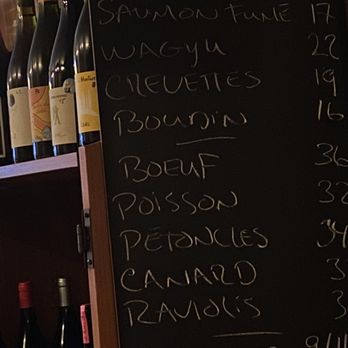 SAUMON FUMÉ 17
WAGYU 22
CREVETTES 19
BOUDIN 16
BOEUF 36
POISSON 32
PÉTONCLES 34
CANARD 3
RAVIOLIS 3
9/11